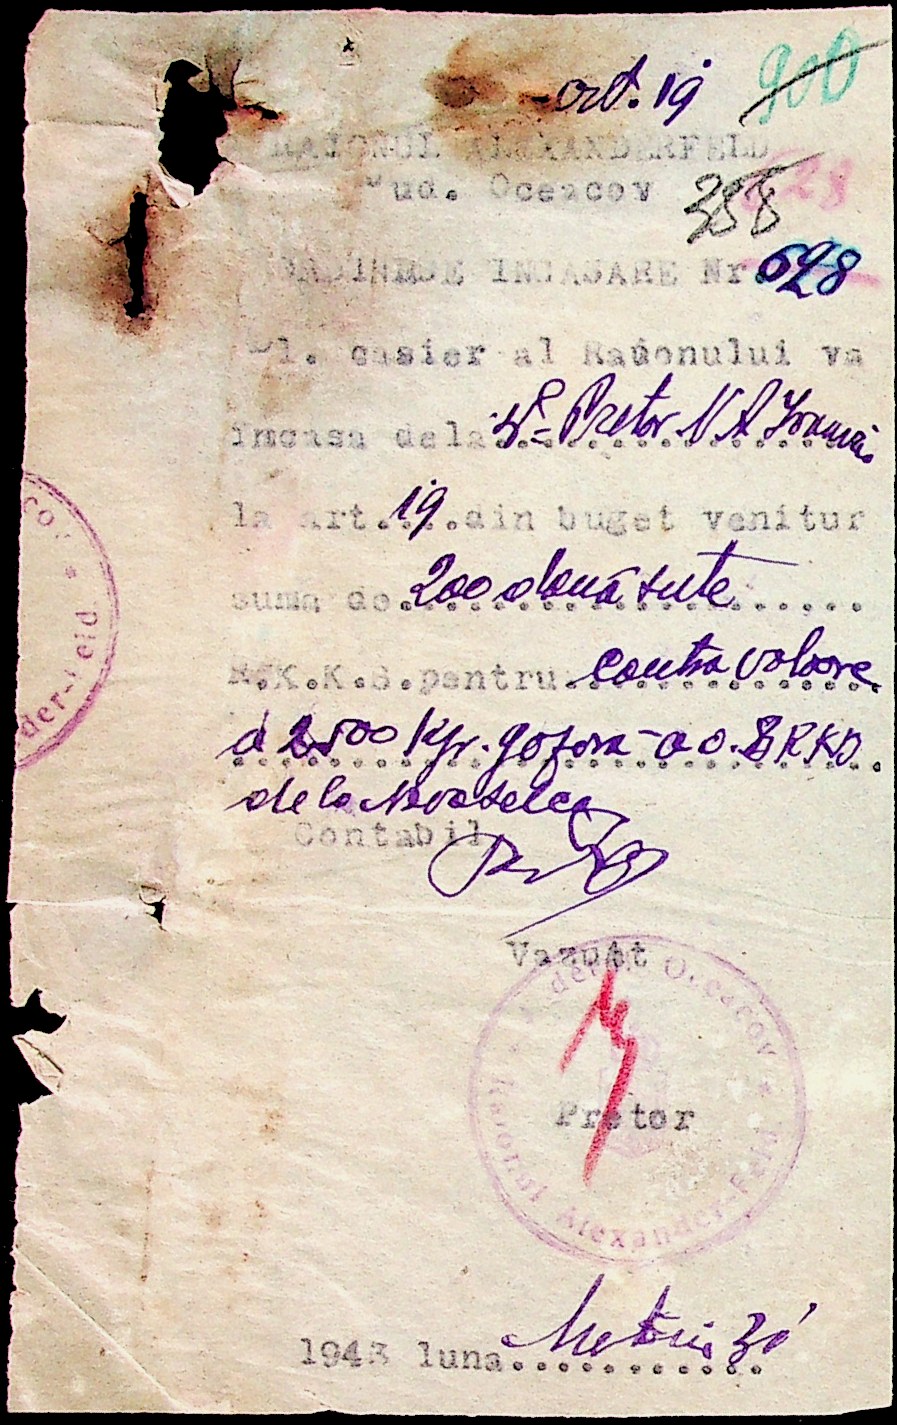 art. 19 900
RAIONUL ALEXANDERFELD
Jud. Oceacov 388 628
ORDINEDE INCASARE Nr 628
Dl. casier al Raionului va
incasa dela Dl Pretor N A
la art. 19 .din buget venitur
suma de. 200 două sute
R.K.K.S.pentru. contra valoare
d 2500 Kgr.
de la Novoselca
Contabil
Vazut
Pretor
Raionul Alexander-Feld * Judetul Oceacov *
der-Feld *
1943 luna